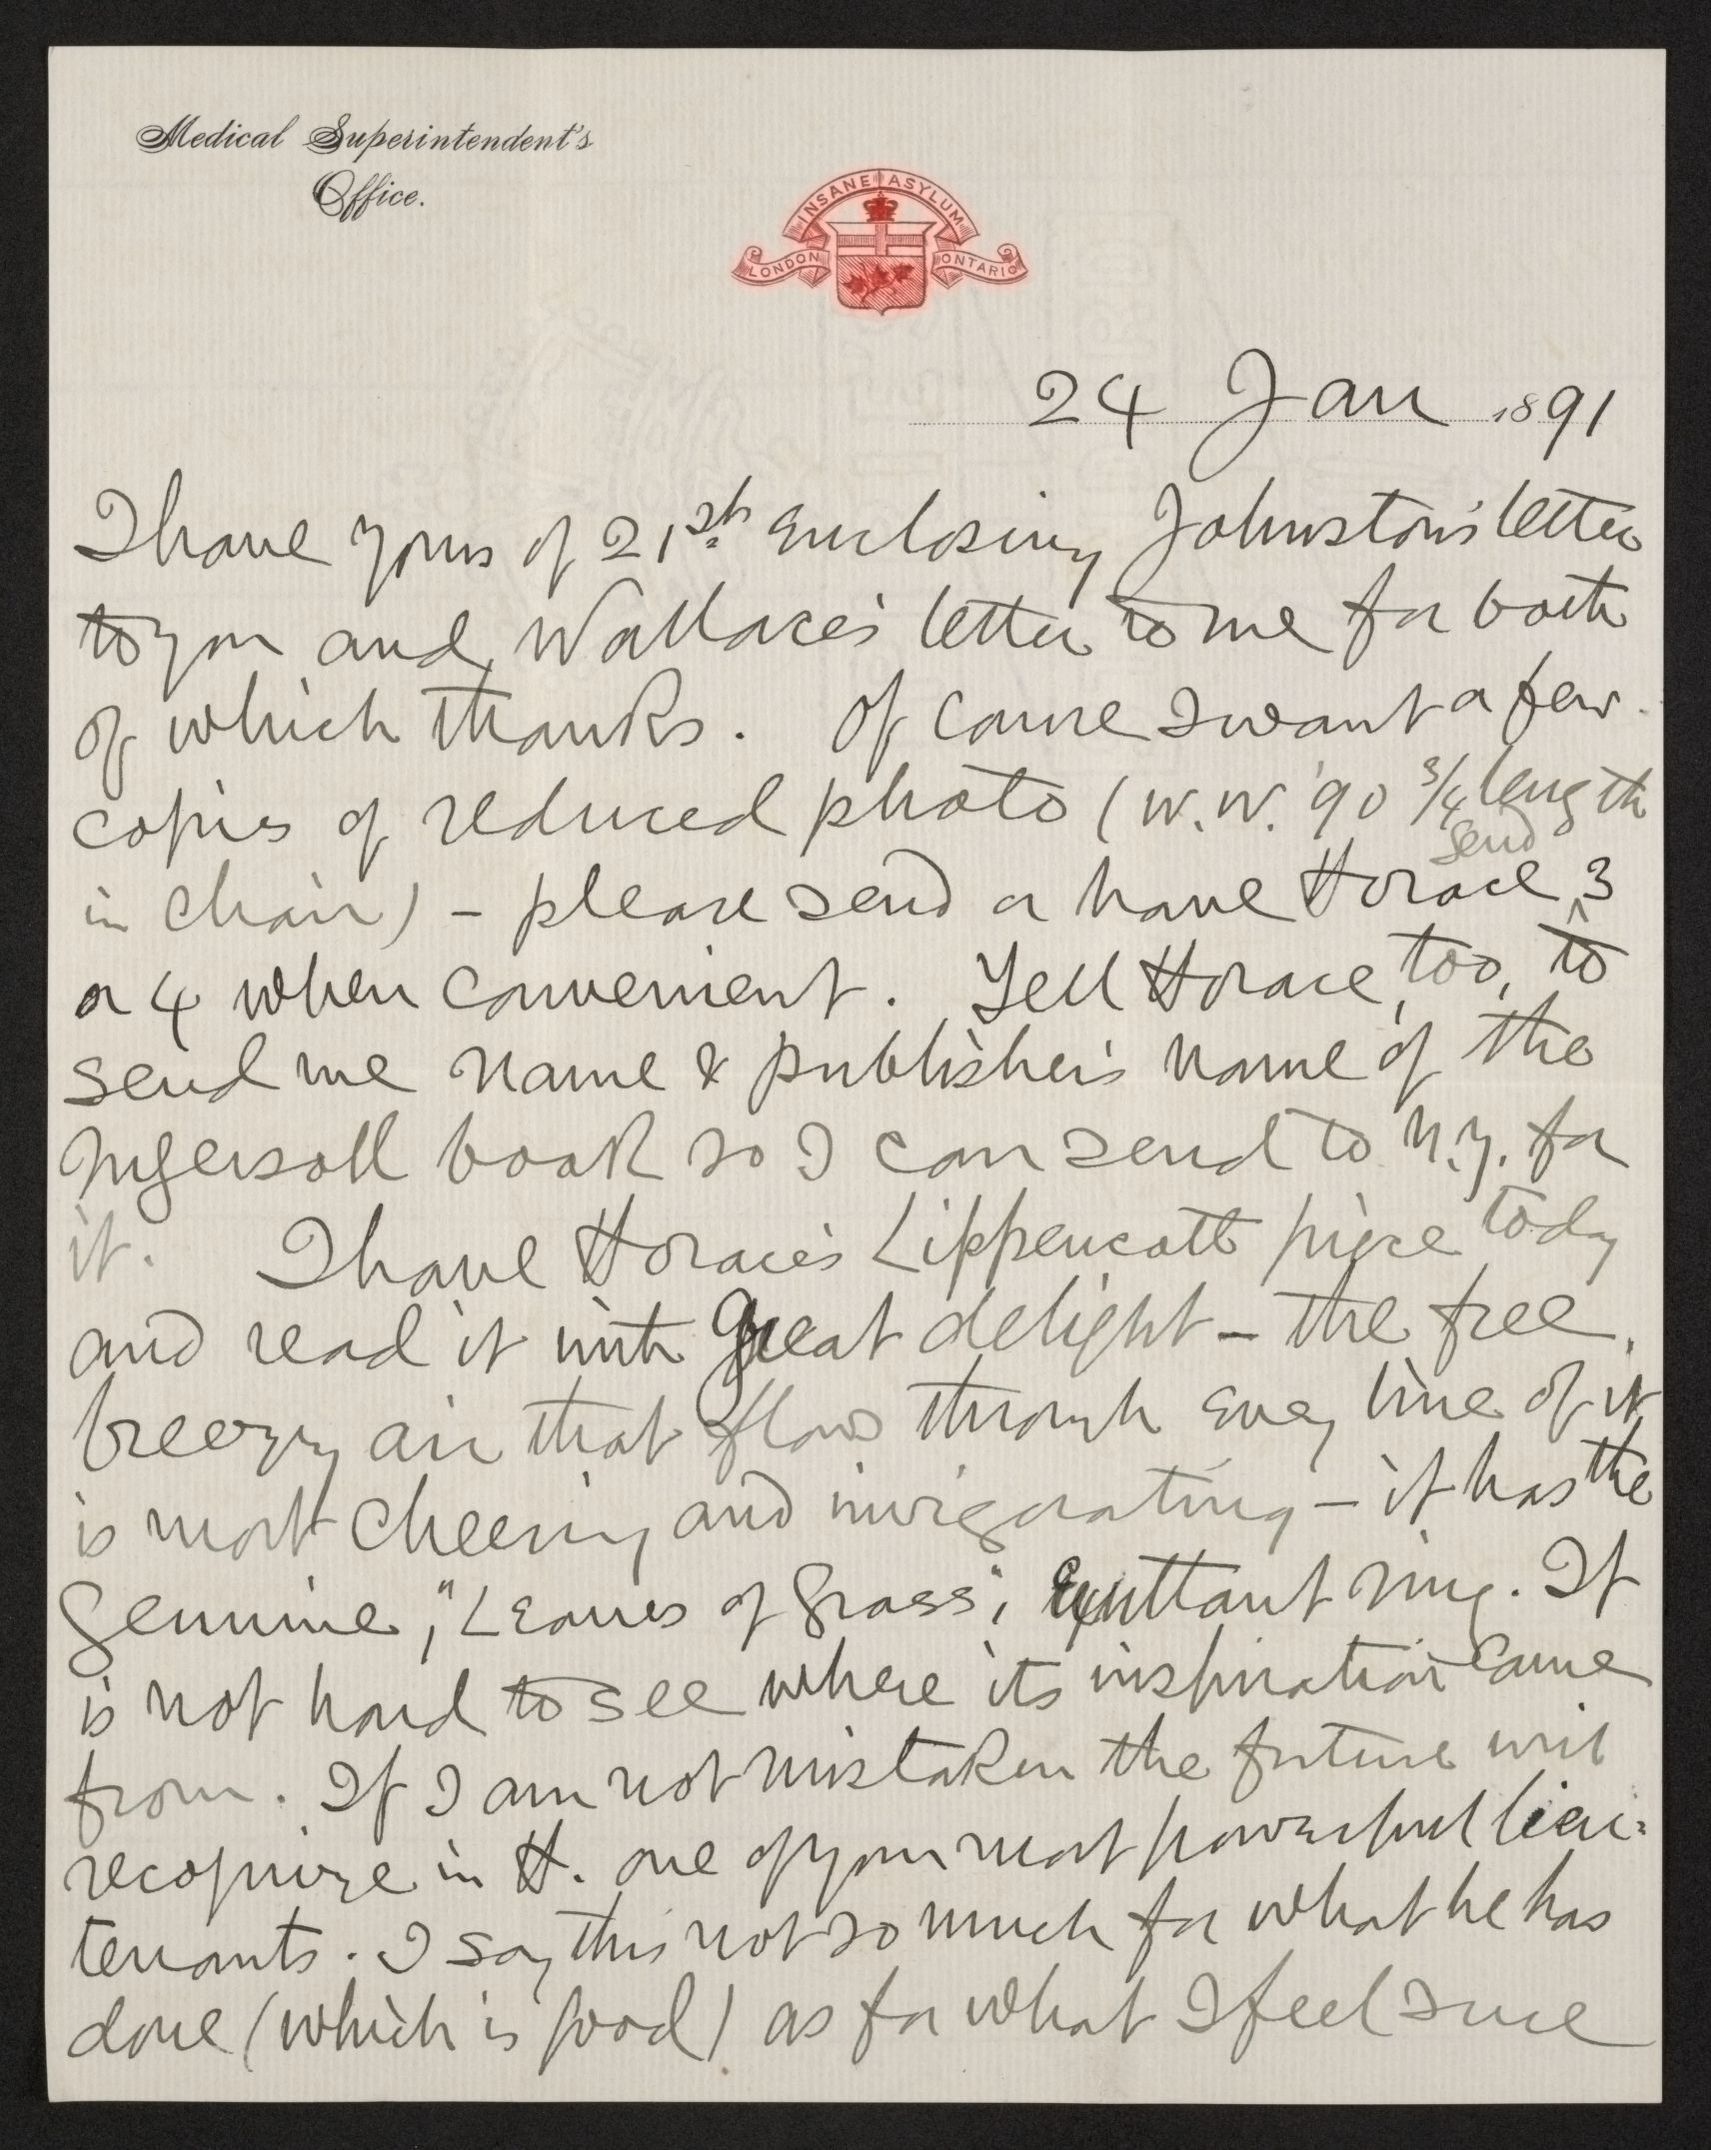 Medical Superintendent's
Office.
INSANE ASYLUM
LONDON ONTARIO
24 Jan 1891
I have yours of 21st enclosing Johnston's letter
to you and Wallace's letter to me for both
of which thanks. Of course I want a few
copies of reduced photo (W.W. '90 3/4 length
in chair) – please send or have Horace ^send 3
or 4 when convenient. Tell Horace, too, to
send me name & publisher's name of the
Ingersoll book so I can send to N.Y. for
it. I have Horace's Lippencott piece today
and read it with great delight – the free,
breezy air that flows through every line of it
is most cheering and invigorating – it has the
genuine, "Leaves of Grass", exultant ring. It
is not hard to see where its inspiration came
from. If I am not mistaken the future will
recognize in H. one of your most powerful lieu-
tenants. I say this not so much for what he has
done (which is good) as for what I feel sure